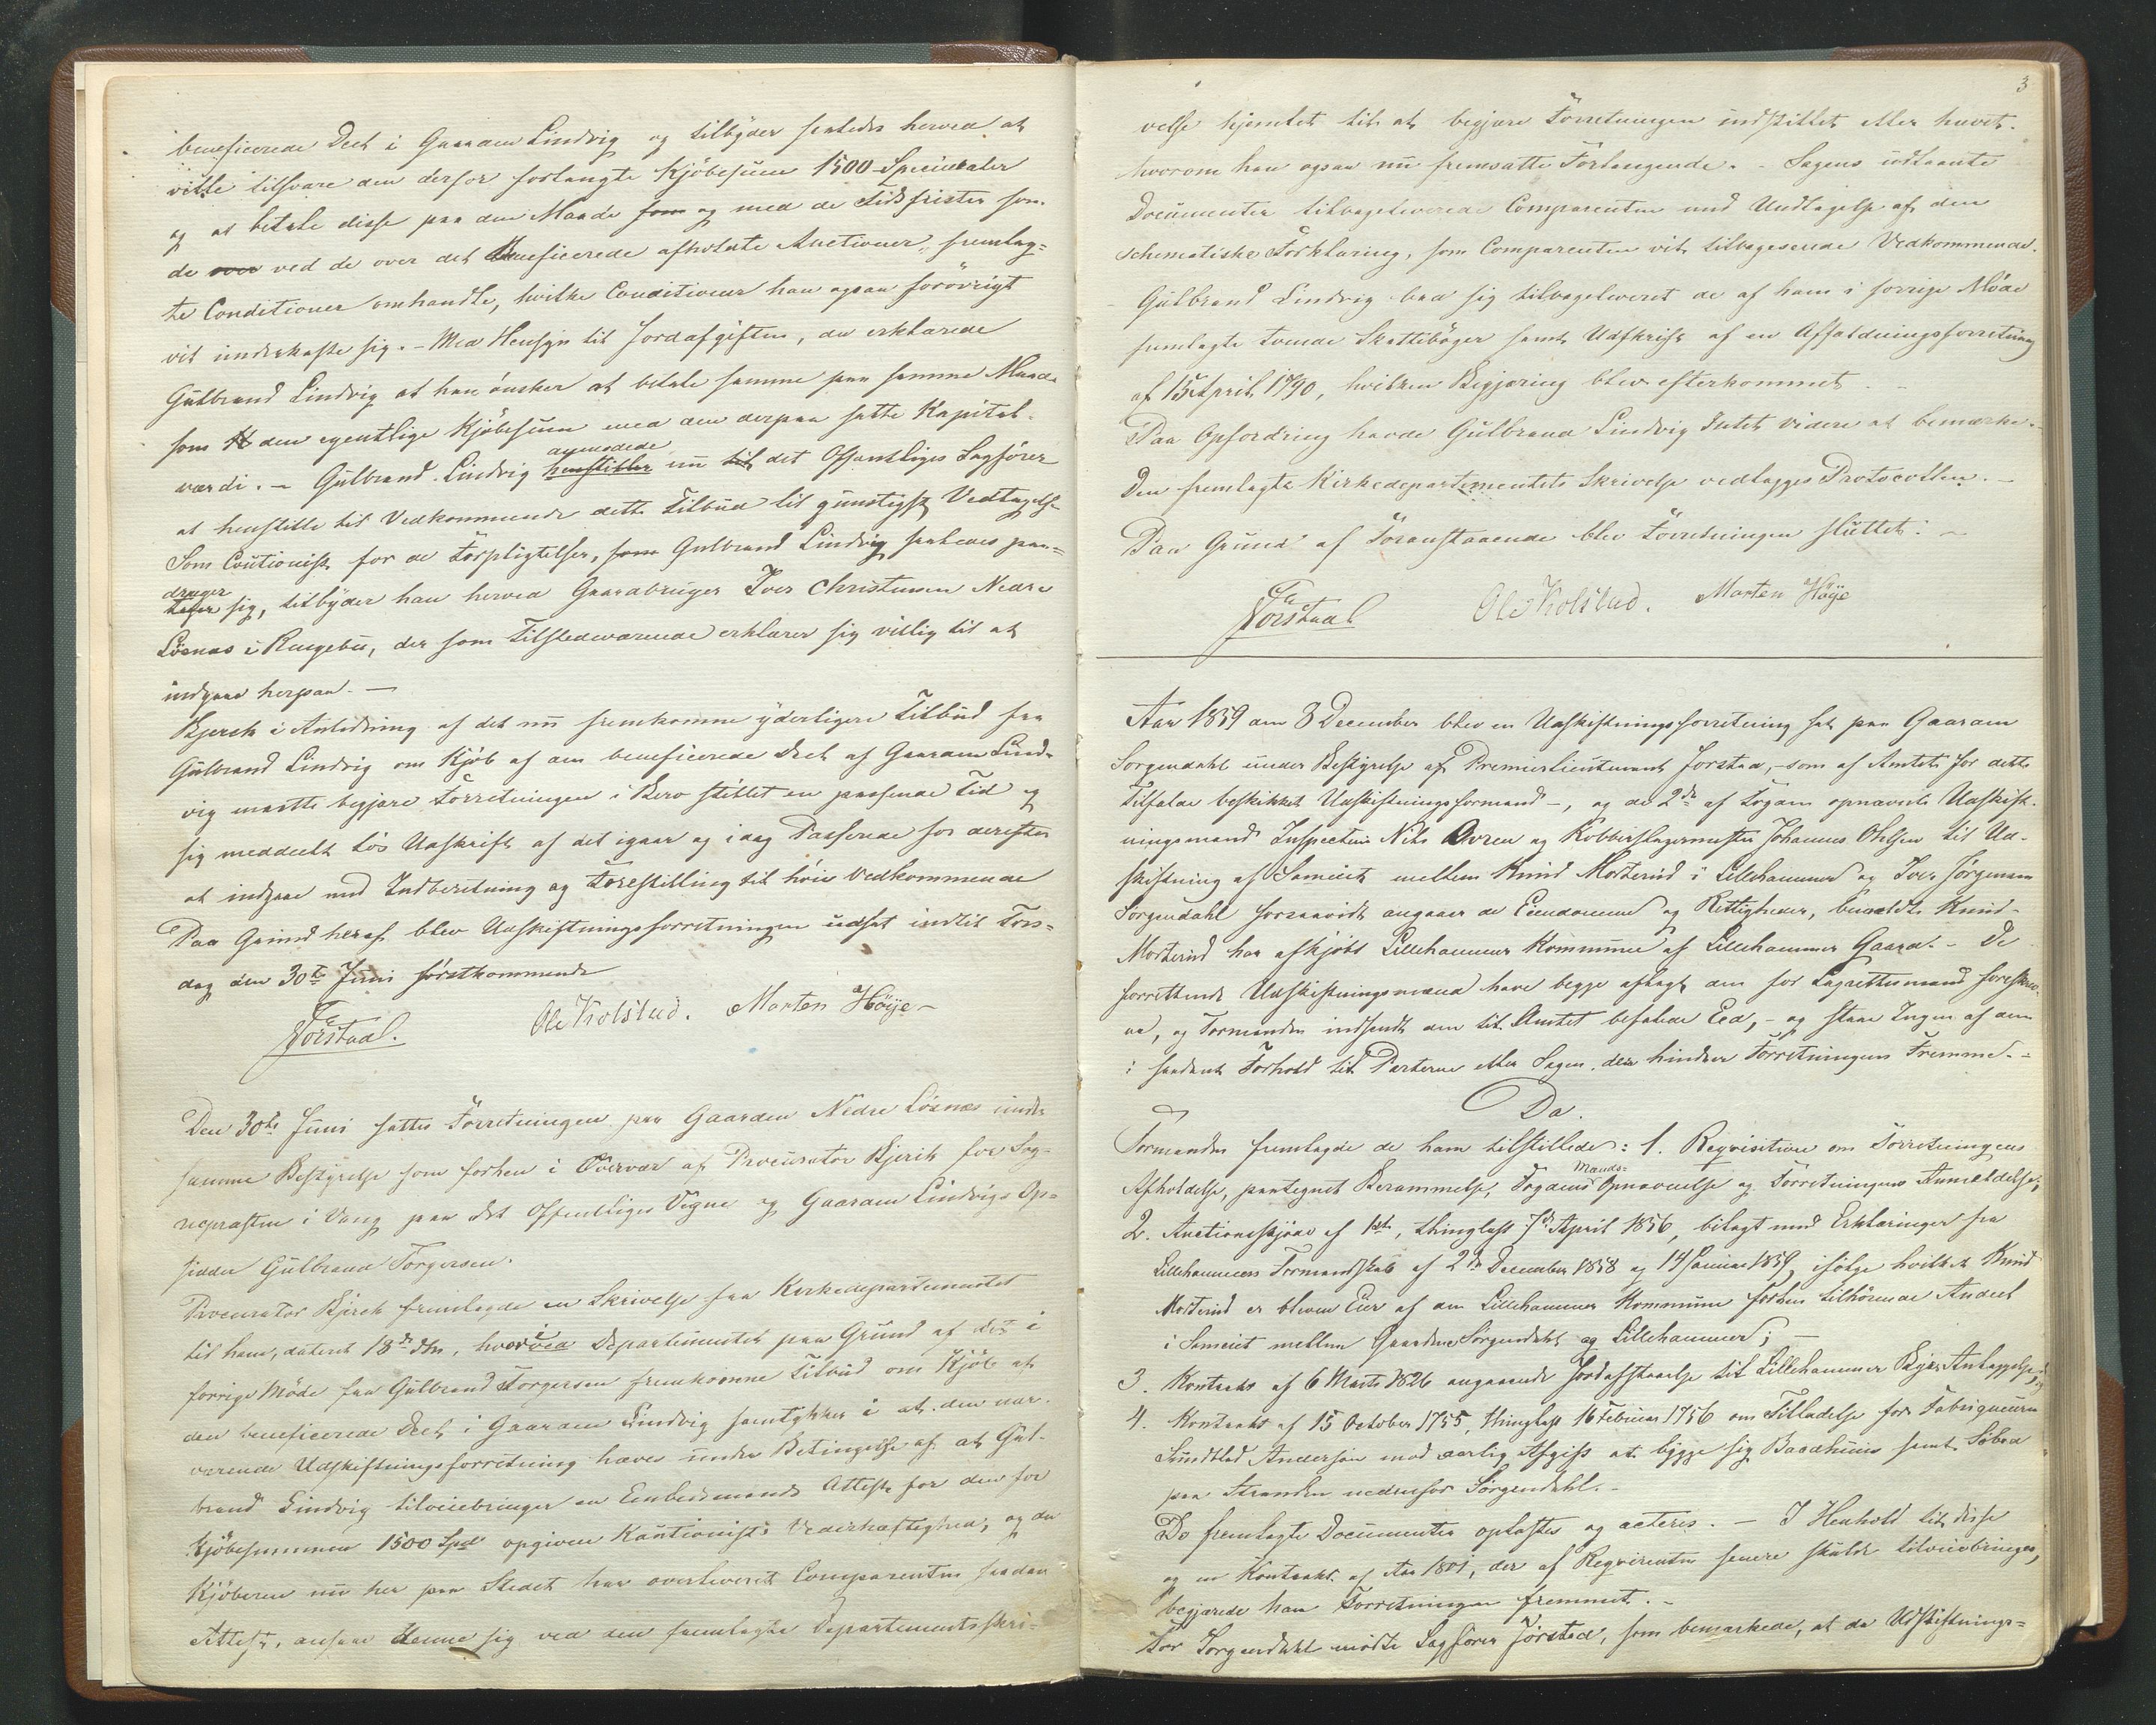 beneficerede Deel i Gaarden Lindvig og tilbyder saaledes herved at
ville tilsvare den derfor forlangte Kjöbesum 1500 Speciedaler
og at betale disse paa den Maade som og med de Tidsfrister som
de over ved de over det Beneficerede afholdte Auctioner fremlag-
te Conditioner omhandle, hvilke Conditioner han ogsaa forövrigt
vil underkaste sig. - Med Hensyn til Jordafgiften, da erklærede
Gulbrand Lindvig at han önsker at betale samme paa samme Maade
som den egentlige Kjöbesum med den derpaa satte Kapital-
værdi. - Gulbrand Lindvig henstiller anmodede nu til det Offentliges Sagförer
at henstille til Vedkommende dette Tilbud til gunstigst Vedtagelse
Som Cautionist for de Forpligtelser, som Gulbrand Lindvig saaledes paa-
tager drager sig, tilbyder han herved Gaardbruger Iver Christensen Nedre
Lösnæs i Ringebu, der som Tilstedeværende erklærer sig villig til at
indgaae herpaa. -
Bjerck i Anledning af det nu fremkomne yderligere Tilbud fra
Gulbrand Lindvig om Kjöb af den beneficerede Deel af Gaarden Lind-
vig maatte begjære Forretningen i Bero stillet en passende Tid og
sig meddeelt lös Udskrift af det igaar og idag Passerede for derefter
at indgaae med Indberetning og Forestilling til höie Vedkommende
Paa Grund heraf blev Udskiftningsforretningen udsat indtil Tors-
dag den 30te Juni förstkommende
Jörstad. Ole Kolstad. Morten Höije -
Den 30te Juni sattes Forretningen paa Gaarden Nedre Lösnæs under
samme Bestyrelse som forhen i Overvær af Procurator Bjerck for Sog-
nepræsten i Vang paa det Offentliges Vegne og Gaarden Lindvigs Op-
sidder Gulbrand Torgersen.
Procurator Bjerck fremlagde en Skrivelse fra Kirkedepartementet
til ham, dateret 18de dtn, hvorved i Departementet paa Grund af det i
forrige Möde fra Gulbrand Torgersen fremkomne Tilbud om Kjöb af
den beneficerede Deel i Gaarden Lindvig samtykker i at den nær-
værende Udskiftningsforretning hæves under Betingelse af at Gul-
brand Lindvig tilveiebringer en Embedsmands Attest for den for
Kjöbesummen 1500 Spd opgivne Kautionists Vederhæftighed, og da
Kjöberen nu her paa Stedet har overleveret Comparenten saadan
Attest, ansaae denne sig ved den fremlagte Departementsskri-
3
velse hjemlet til at begjære Forretningen indstillet eller hævet.
hvorom han ogsaa nu fremsatte Forlangende. - Sagens udlaante
Documenter tilbageleverede Comparenten med Undtagelse af den
schematiske Forklaring, som Comparenten vil tilbagesende Vedkommende.
Gulbrand Lindvig bad sig tilbageleveret de af ham i forrige Möde
fremlagte tvende Skattebøger samt Udskrift af en Affældningsforretning
af 15 April 1790, hvilken Begjæring blev efterkommet. -
Paa Opfordring havde Gulbrand Lindvig Intet videre at bemærke.
Den fremlagte Kirkedepartementets Skrivelse vedlægges Protocollen. -
Paa Grund af Foranstaaende blev Forretningen sluttet: -
Jörstad Ole Kolstad. Morten Höije
Aar 1859 den 8 December blev en Udskiftningsforretning sat paa Gaarden
Sorgendahl under Bestyrelse af Premierlieutenant Jorstad, - som af Amtet for dette
Tilfælde beskikket Udskiftningsformand -, og de 2de af Fogden opnævnte Udskift-
ningsmænd Inspecteur Nils Avren og Kobberslagermester Johannes Ohlsen til Ud-
skiftning af Sameiet mellem Knud Mosterud i Lillehammer og Iver Jörgensen
Sorgendahl forsaavidt angaaer de Eiendomme og Rettigheder, bemeldte Knud
Mosterud har afkjöbt Lillehammer Kommune af Lillehammer Gaard. - De
forrettende Udskiftningsmænd have begge aflagt den for Lagrettesmænd foreskrev-
ne, og Formanden indsendt den til Amtet befalede Eed, - og staae Ingen af dem
i saadant Forhold til Parterne eller Sagen, der hindrer Forretningens Fremme. -
Da.
Formanden fremlagde de ham tilstillede: 1. Reqvisition om Forretningens
Afholdelse, paategnet Berammelse, Fogdens Mands- Opnævnelse og Forretningens Anmeldelse;
2. Auctionsskjöde af 1ste, thinglæst 7de April 1856, bilagt med Erklæringer fra
Lillehammers Formandskab af 2de December 1858 og 14 Januar 1859, ifölge hvilket Knud
Mosterud er bleven Eier af den Lillehammer Kommune forhen tilhörende Andeel
i Sameiet mellem Gaardene Sörgendahl og Lillehammer; -
3. Kontrakt af 6 Marts 1826 angaaende Jordafstaaelse til Lillehammer Byes Anlæggelse, og
4. Kontrakt af 15 October 1755, thinglæst 16 Februar 1756 om Tilladelse for Fabriqueuren
Sundblad Andersen mod aarlig Afgift at bygge sig Baadhuus samt Söbod
paa Stranden nedenfor Sörgendahl. -
De fremlagte Documenter oplæstes og acteres. - I Henhold til disse
og en Kontrakt af Aar 1801, der af Reqvirenten senere skulde tilveiebringes,
begjærede han Forretningen fremmet. -
For Sorgendahl mödte Sagförer Jörstad, som bemærkede, at da Udskiftnings-